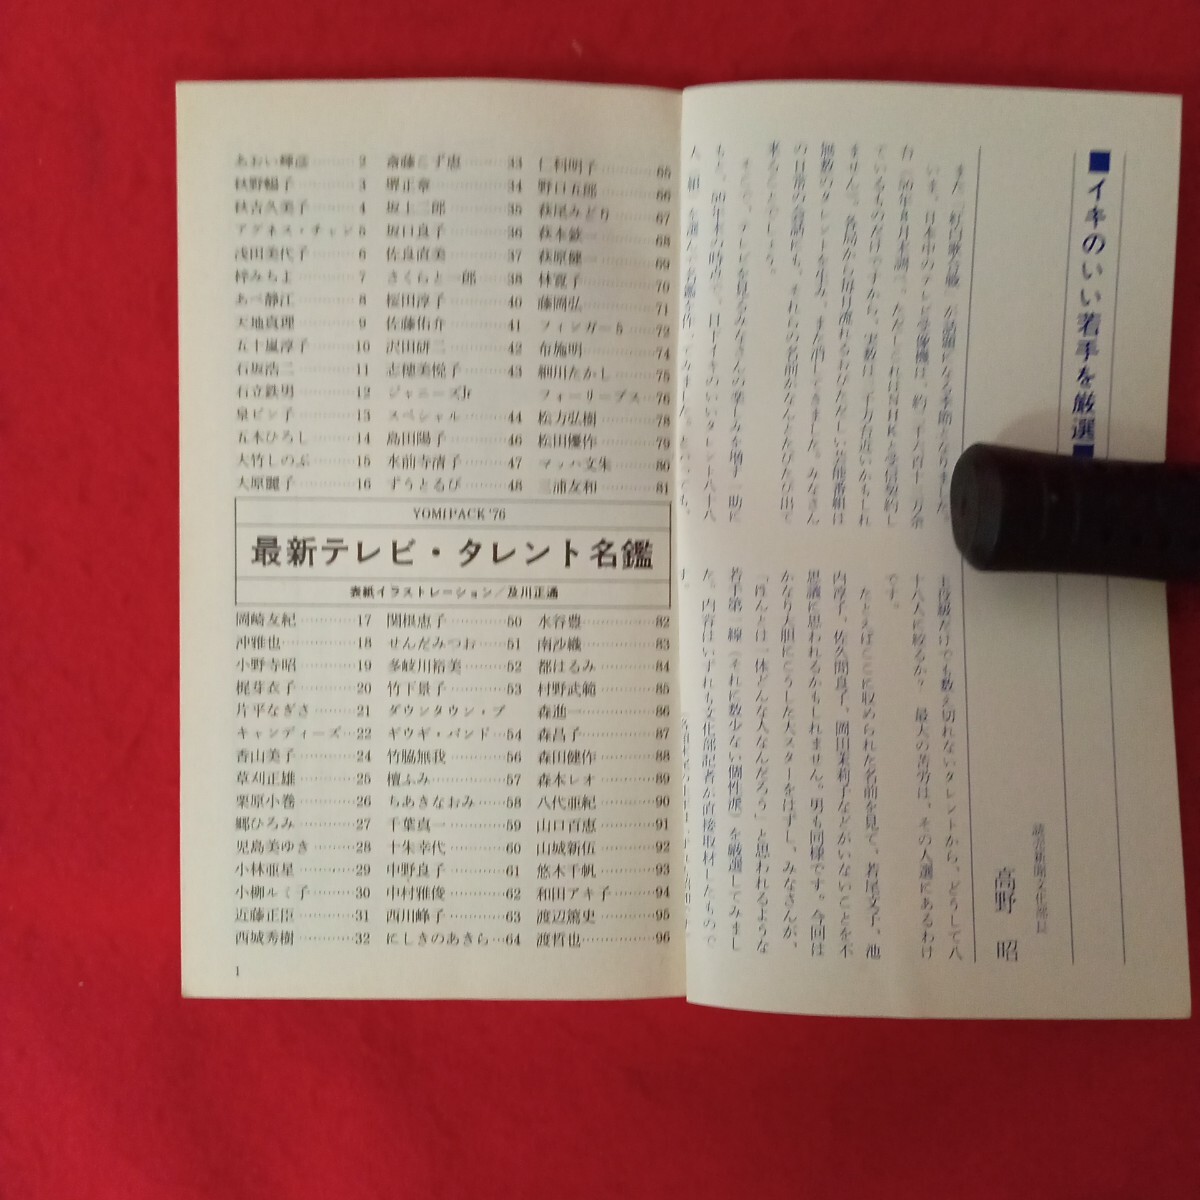 ■イキのいい若手を厳選■
読売新聞文化部長
高野 昭
また「紅白歌合戦」が話題になる季節となりました。
いま、日本中のテレビ受像機は、約二千六百十二万余
ているものだけですから、実数は三千万台近いかもしれ
ません)。各局から毎月流れるおびただしい芸能番組は
無数のタレントを生み、また消してきました。みなさん
の日常の会話にも、それらの名前がなんとたびたび出て
来ることでしょう。
そこで、テレビを見るみなさんの楽しみを増す一助に
もと、50年末の時点で、目下イキのいいタレント八十八
人(組)を選んで名鑑を作ってみました。といっても、
主役級だけでも数え切れないタレントから、どうして八
十八人に絞るか? 最大の苦労は、その人選にあるわけ
です。
たとえばここに収められた名前を見て、若尾文子、池
内淳子、佐久間良子、岡田茉莉子などがいないことを不
思議に思われるかもしれません。男も同様です。今回は
かなり大胆にこうした大スターをはずし、みなさんが、
「ほんとは一体どんな人なんだろう」と思われるような
若手第一線(それに数少ない個性派)を厳選してみまし
た。内容はいずれも文化部記者が直接取材したもので
す。
あおい輝彦………2
秋野暢子………3
秋吉久美子………4
アグネス・チャン5
浅田美代子………6
梓みちよ………7
あべ静江………8
天地真理………9
五十嵐淳子………10
石坂浩二………11
石立鉄男………12
泉ピン子………13
五木ひろし………14
大竹しのぶ………15
大原麗子………16
斎藤こず恵………33
堺正章………34
坂上二郎………35
坂口良子………36
佐良直美………37
さくらと一郎………38
桜田淳子………40
佐藤佑介………41
沢田研二………42
志穂美悦子………43
ジャニーズJr
スペシャル………44
島田陽子………46
水前寺清子………47
ずうとるび………48
仁科明子………65
野口五郎………66
萩尾みどり………67
萩本欽一………68
萩原健一………69
林寛子………70
藤岡弘………71
フィンガー5………72
布施明………74
細川たかし………75
フォーリーブス…76
松方弘樹………78
松田優作………79
マッハ文朱………80
三浦友和………81
YOMIPACK'76
最新テレビ・タレント名鑑
表紙イラストレーション/及川正通
岡崎友紀………17
沖雅也………18
小野寺昭………19
梶芽衣子………20
片平なぎさ………21
キャンディーズ…22
香山美子………24
草刈正雄………25
栗原小巻………26
郷ひろみ………27
児島美ゆき………28
小林亜星………29
小柳ルミ子………30
近藤正臣………31
西城秀樹………32
関根恵子………50
せんだみつお……51
多岐川裕美………52
竹下景子………53
ダウンタウン・ブ
ギウギ・バンド…54
竹脇無我………56
檀ふみ………57
ちあきなおみ……58
千葉真一………59
十朱幸代………60
中野良子………61
中村雅俊………62
西川峰子………63
にしきのあきら…64
水谷豊………82
南沙織………83
都はるみ………84
村野武範………85
森進一………86
森昌子………87
森田健作………88
森本レオ………89
八代亜紀………90
山口百恵………91
山城新伍………92
悠木千帆………93
和田アキ子………94
渡辺篤史………95
渡哲也………96
1